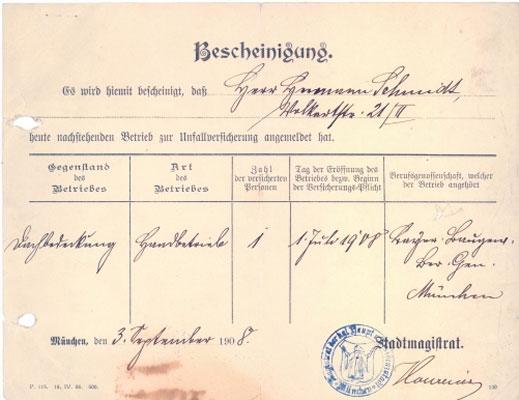 Bescheinigung.
Es wird hiemit bescheinigt, daß Herr Hermann Schmidt,
Volkartstr. 21/II
heute nachstehenden Betrieb zur Unfallversicherung angemeldet hat.
Gegenstand des Betriebes
Art des Betriebes
Zahl der versicherten Personen
Tag der Eröffnung des Betriebes bezw. Beginn der Versicherungs-Pflicht
Berufsgenossenschaft, welcher der Betrieb angehört
Dachbedeckung Handbetrieb 1 1. Juli 1908 Bayer. Baugew.
Ber. Gen.
München
München, den 3. September 1908.
Stadtmagistrat.